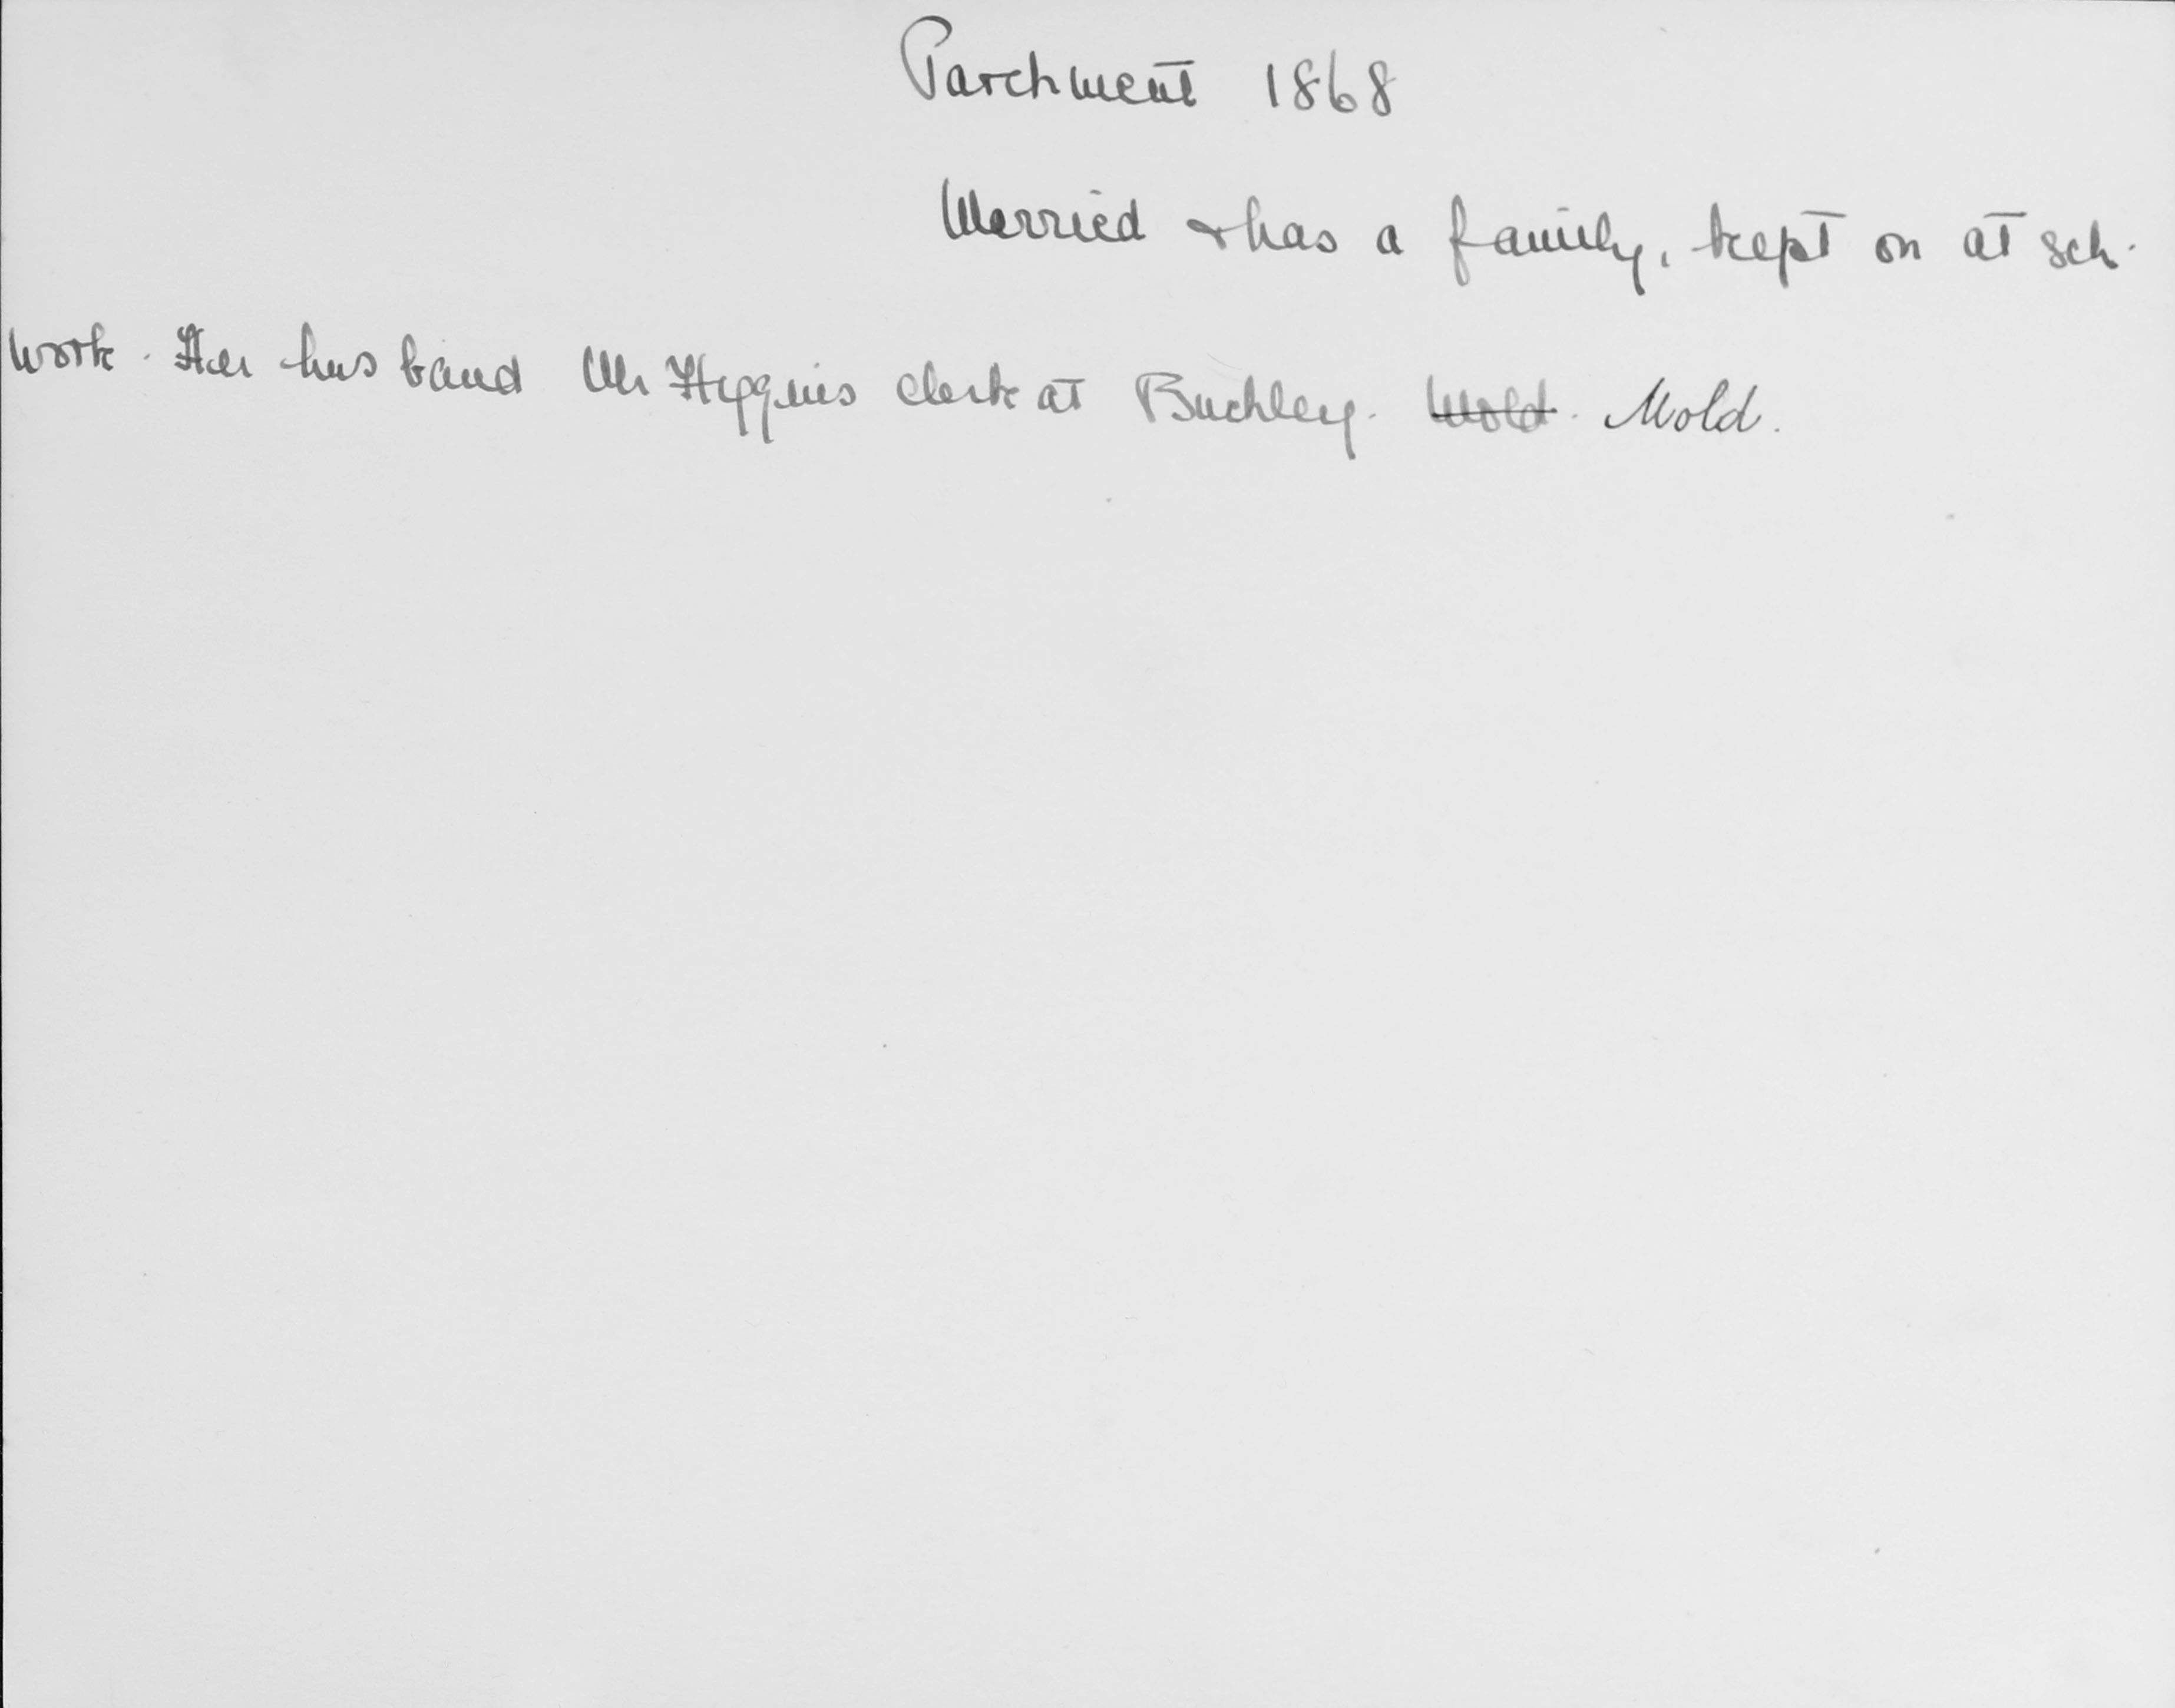 Parchment 1868
Married & has a family, kept on at sch.
work. Her husband Mr Higgins clerk at Buckley. Mold. Mold.